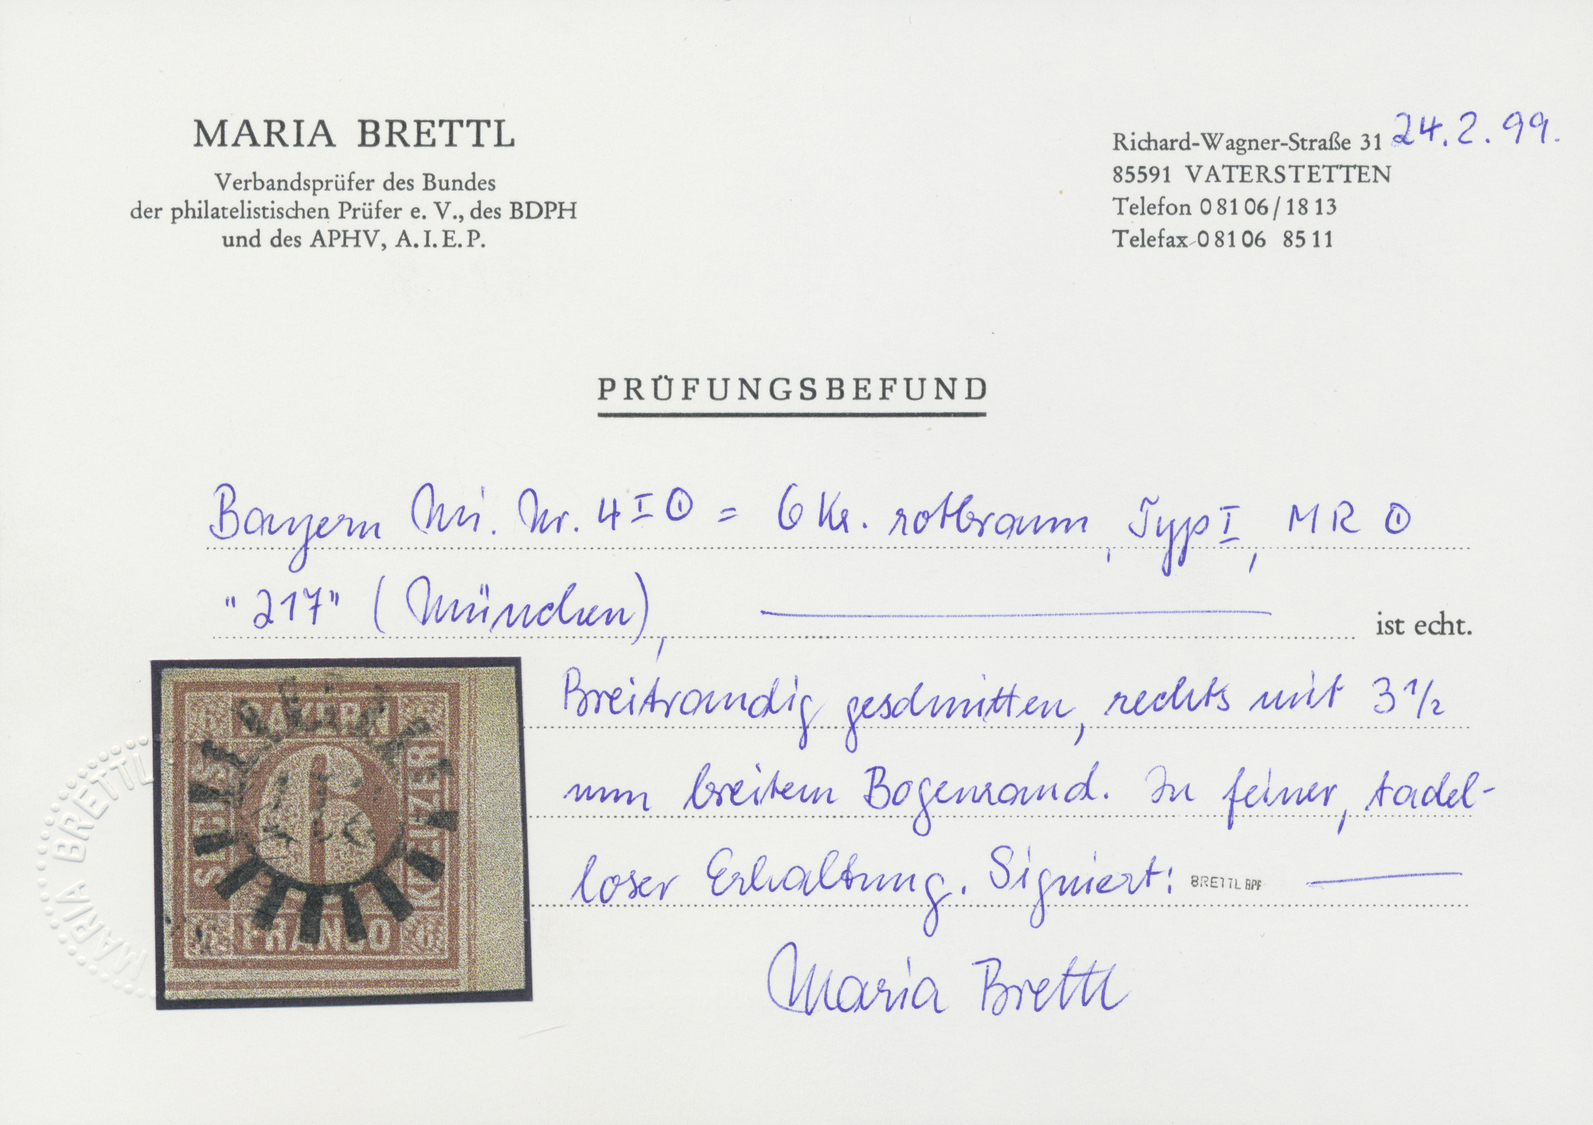 MARIA BRETTL
Verbandsprüfer des Bundes
der philatelistischen Prüfer e. V., des BDPH
und des APHV, A.I.E.P.
Richard-Wagner-Straße 31 24.2.99.
85591 VATERSTETTEN
Telefon 08106/1813
Telefax 08106 8511
PRÜFUNGSBEFUND
Bayern Mi. Nr. 4 I ⊙ = 6 Kr. rotbraun, Typ I, MR ⊙
"217" (München), ist echt.
Breitrandig geschnitten, rechts mit 3 1/2
mm breitem Bogenrand. In feiner, tadel-
loser Erhaltung. Signiert: BRETTL BPP
Maria Brettl
MARIA BRETTL
MARIA
BAYERN
6
SECHS
KREUZER
FRANCO
6